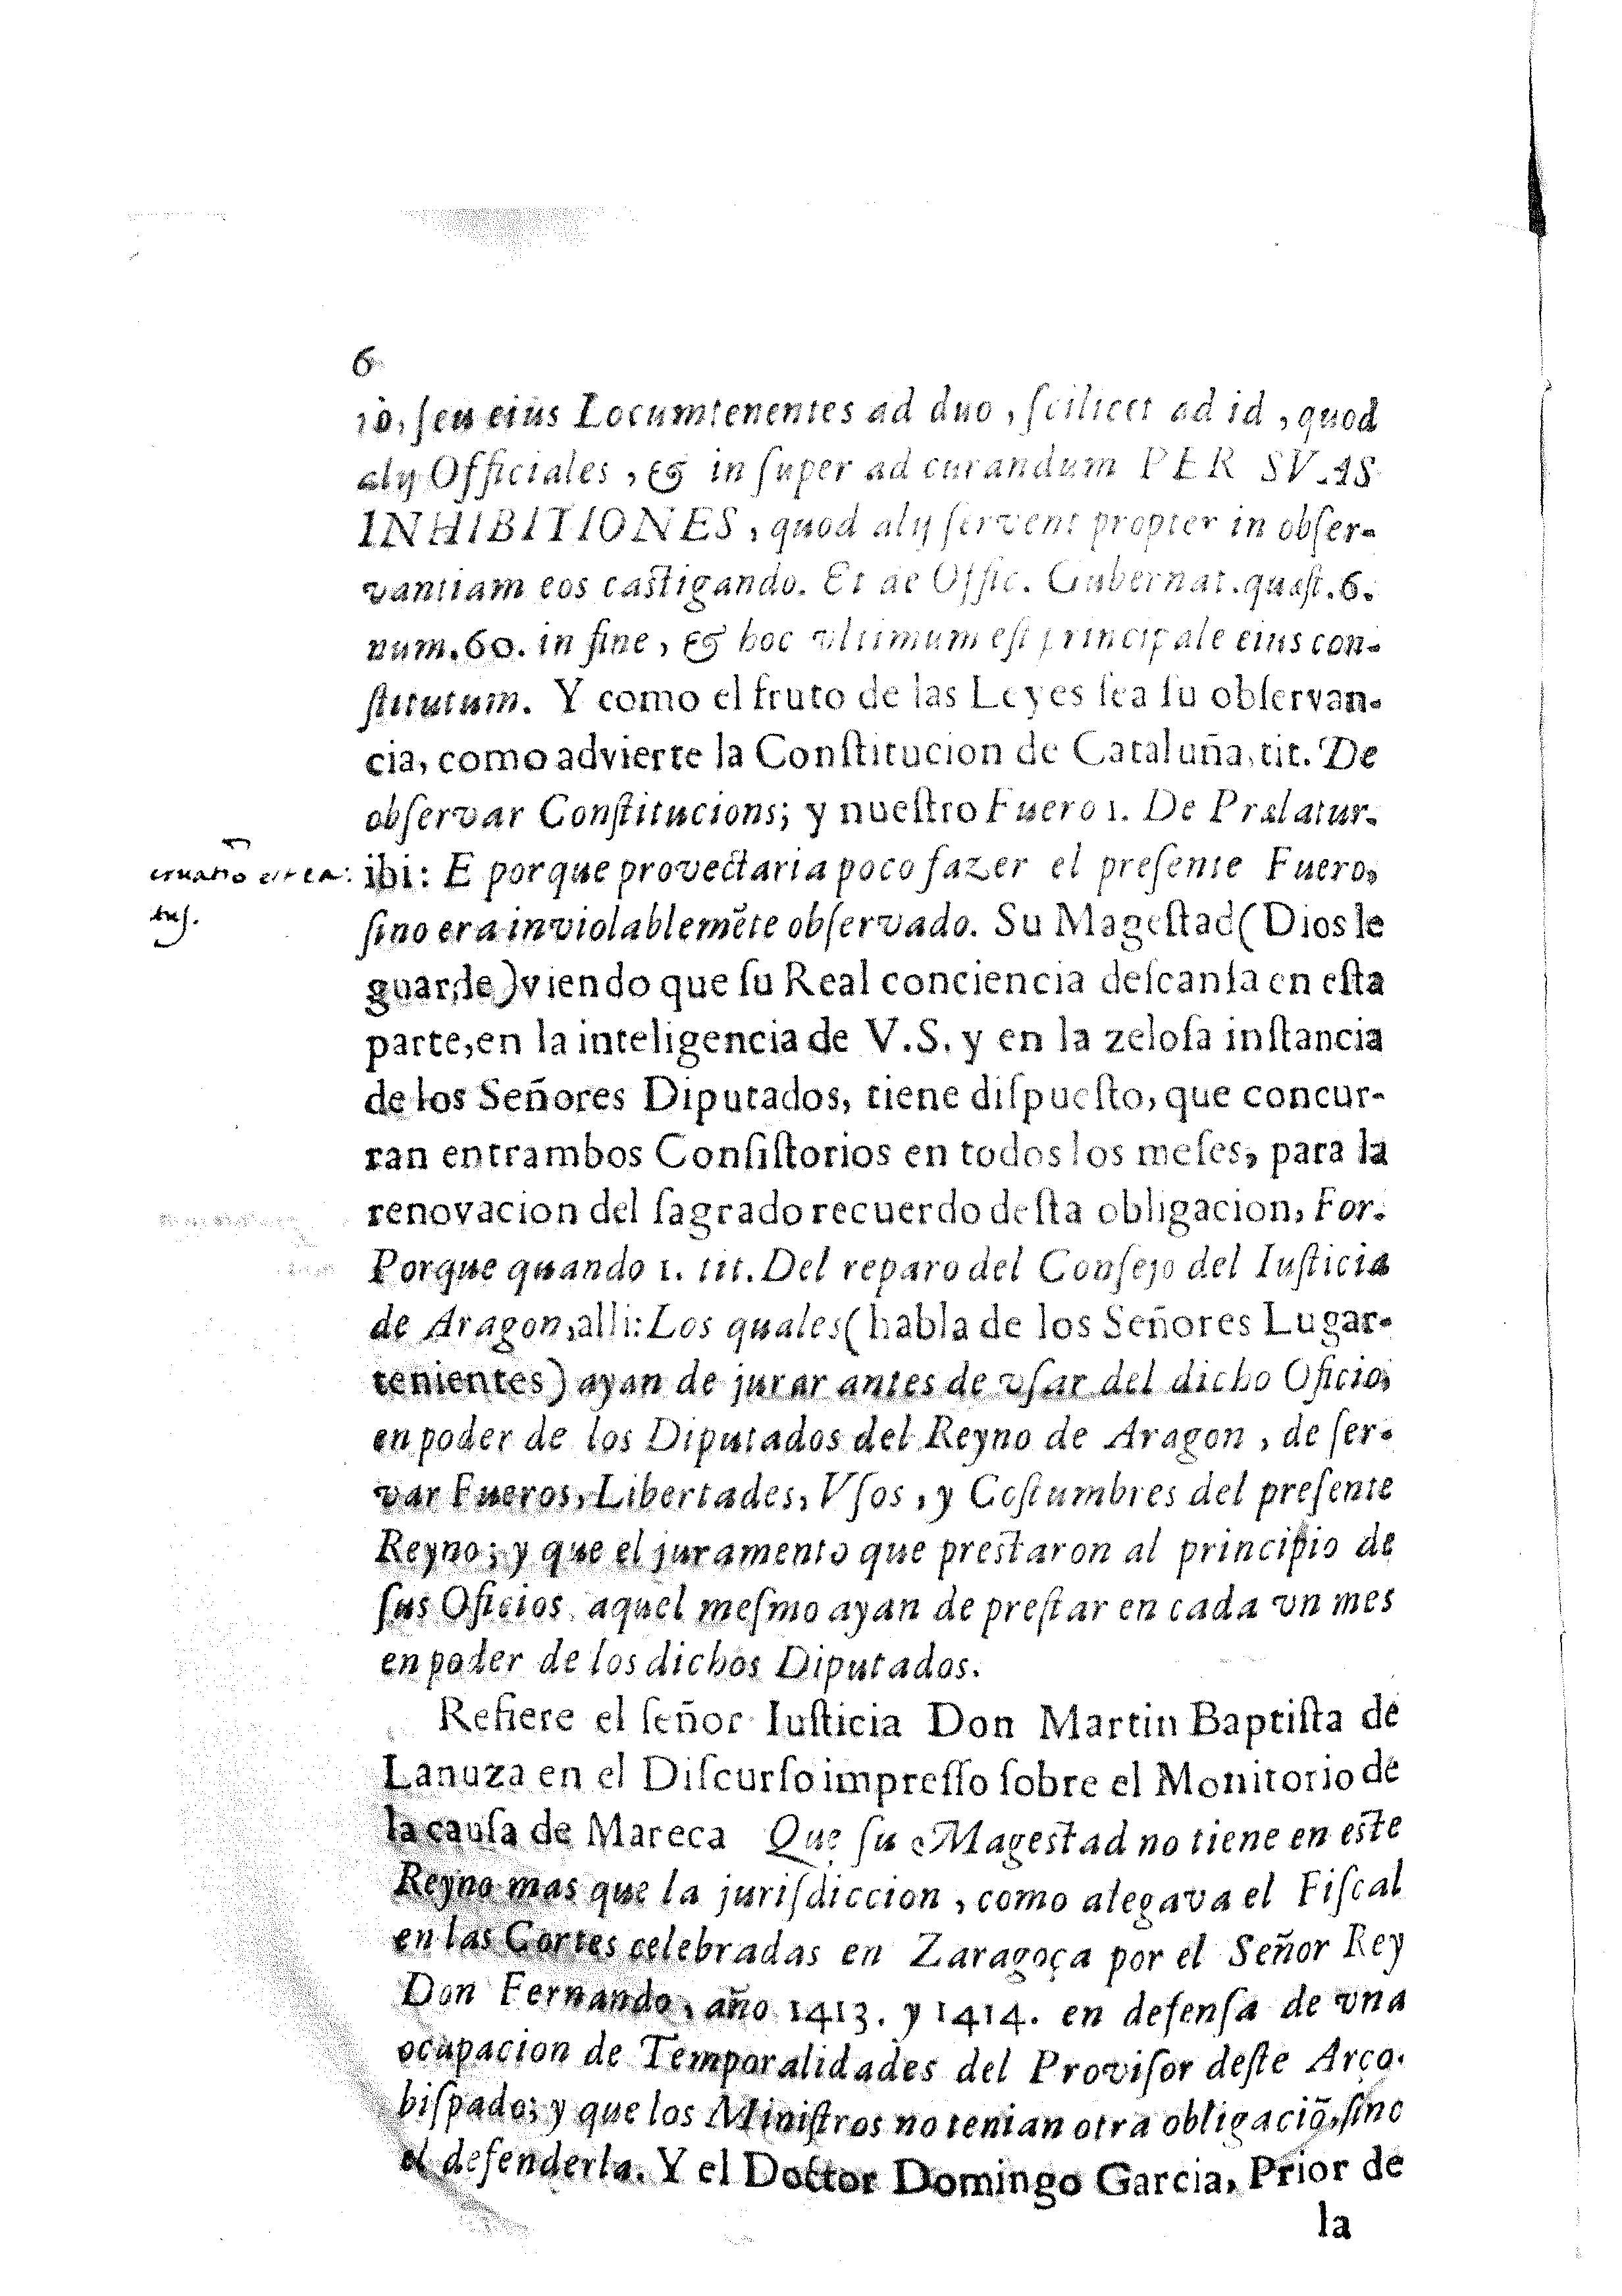 6
io, ſeu eius Locumtenentes ad duo, ſcilicet ad id, quod
alij Officiales, & in ſuper ad curandum PER SVAS
INHIBITIONES, quod alij ſervent propter in obſer-
vantiam eos caſtigando. Et de Offic. Gubernat. quæſt. 6.
num. 60. in fine, & hoc vltimum eſt principale eius con-
ſtitutum. Y como el fruto de las Leyes ſea ſu obſervan-
cia, como advierte la Conſtitucion de Cataluña, tit. De
obſervar Conſtitucions; y nueſtro Fuero 1. De Prælatur.
ibi: E porque provectaria poco fazer el preſente Fuero,
ſino era inviolablemẽte obſervado. Su Mageſtad (Dios le
guarde) viendo que ſu Real conciencia deſcanſa en eſta
parte, en la inteligencia de V.S. y en la zeloſa inſtancia
de los Señores Diputados, tiene diſpueſto, que concur-
ran entrambos Conſiſtorios en todos los meſes, para la
renovacion del ſagrado recuerdo deſta obligacion, For.
Porque quando 1. tit. Del reparo del Conſejo del Iuſticia
de Aragon, alli: Los quales (habla de los Señores Lugar-
tenientes) ayan de jurar antes de vſar del dicho Oficio,
en poder de los Diputados del Reyno de Aragon, de ſer-
var Fueros, Libertades, Vſos, y Coſtumbres del preſente
Reyno; y que el juramento que preſtaron al principio de
ſus Oficios, aquel meſmo ayan de preſtar en cada vn mes
en poder de los dichos Diputados.
Refiere el ſeñor Iuſticia Don Martin Baptiſta de
Lanuza en el Diſcurſo impreſſo ſobre el Monitorio de
la cauſa de Mareca Que ſu Mageſtad no tiene en eſte
Reyno mas que la juriſdiccion, como alegava el Fiſcal
en las Cortes celebradas en Zaragoça por el Señor Rey
Don Fernando, año 1413. y 1414. en defenſa de vna
ocupacion de Temporalidades del Proviſor deſte Arço-
biſpado; y que los Miniſtros no tenian otra obligaciõ, ſino
el defenderla. Y el Doctor Domingo Garcia, Prior de
la